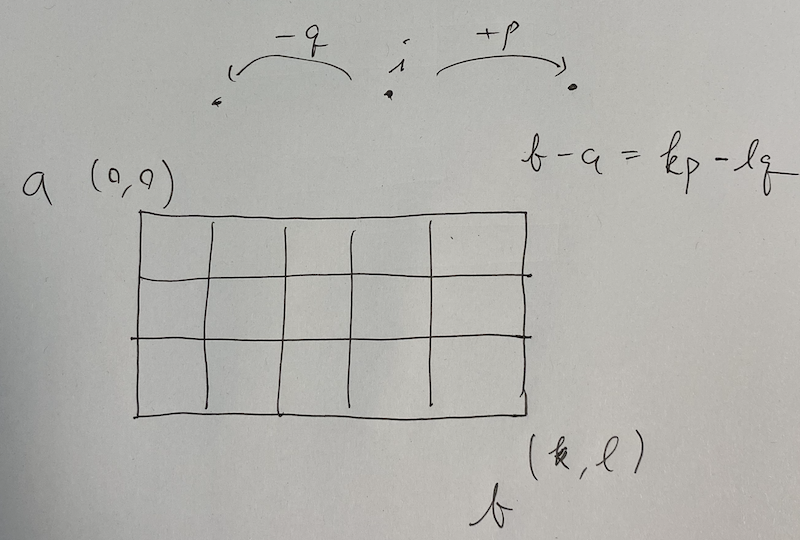 -q i +p
b-a = kp-lq
a (0,0)
(k,l)
b